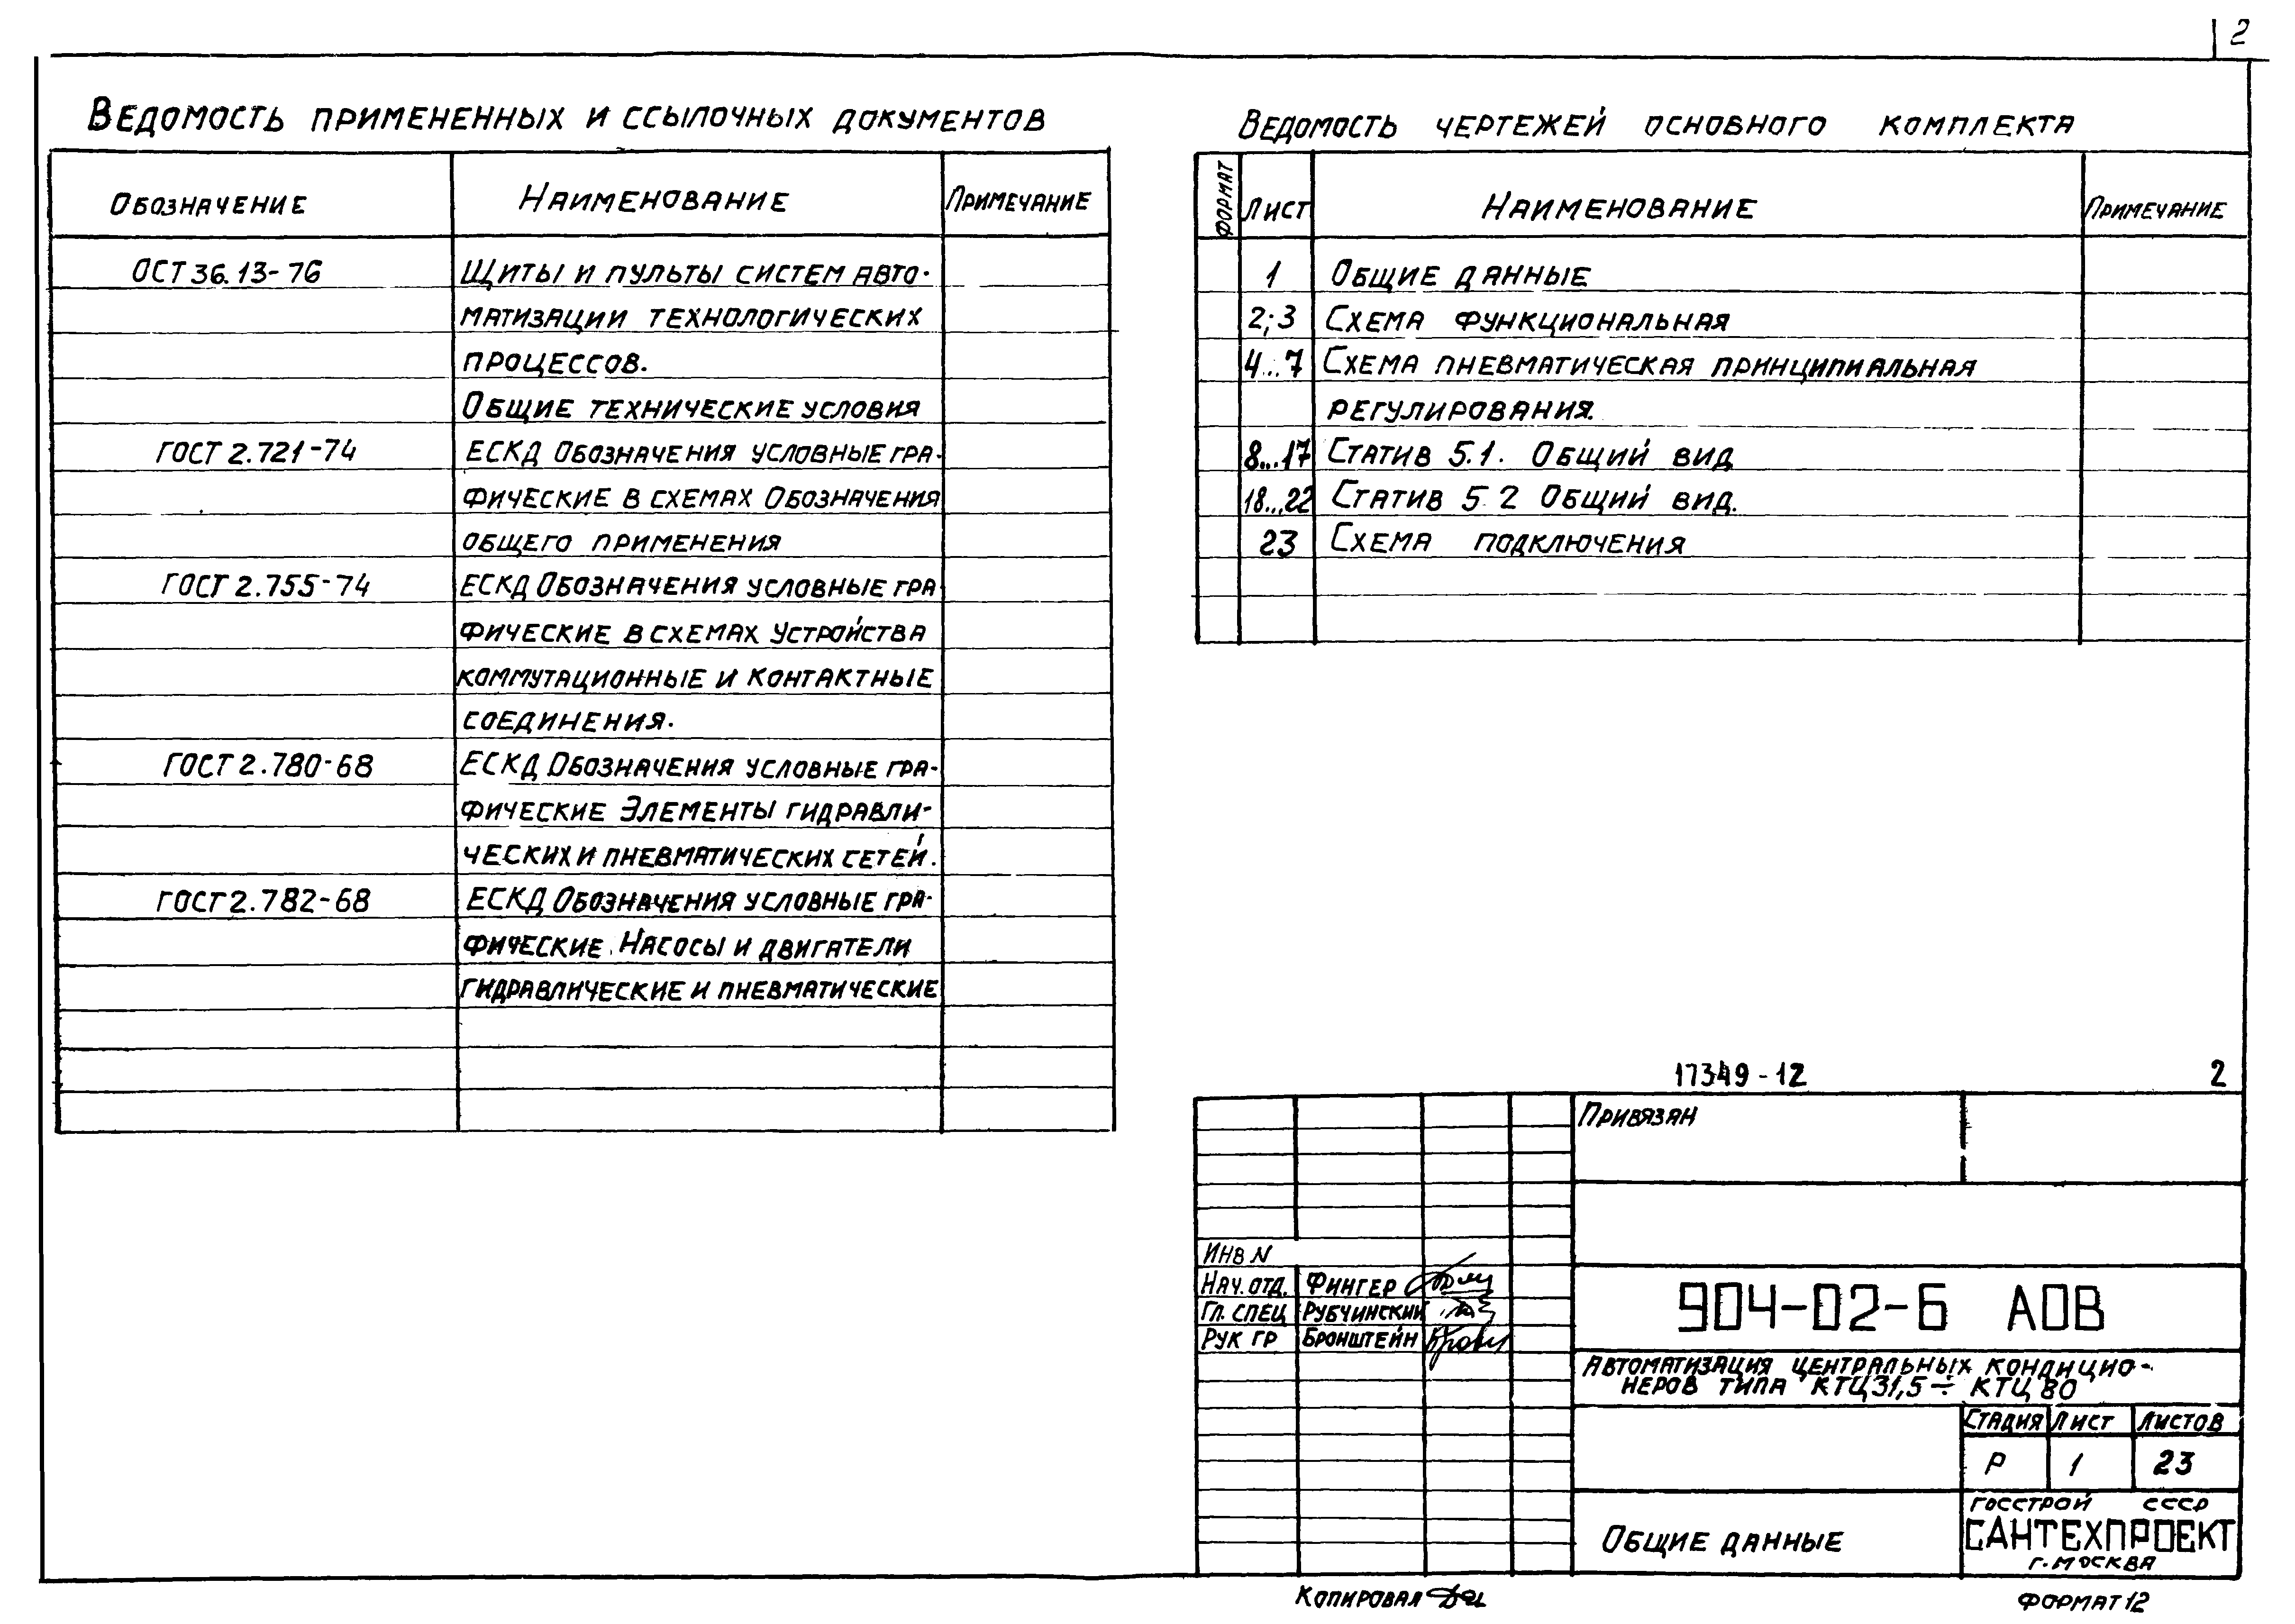 2
Ведомость примененных и ссылочных документов
Обозначение Наименование Примечание
ОСТ 36.13-76 Щиты и пульты систем авто-
матизации технологических
процессов.
Общие технические условия
ГОСТ 2.721-74 ЕСКД Обозначения условные гра-
фические в схемах Обозначения
общего применения
ГОСТ 2.755-74 ЕСКД Обозначения условные гра
фические в схемах Устройства
коммутационные и контактные
соединения.
ГОСТ 2.780-68 ЕСКД Обозначения условные гра-
фические Элементы гидравли-
ческих и пневматических сетей.
ГОСТ 2.782-68 ЕСКД Обозначения условные гра-
фические. Насосы и двигатели
гидравлические и пневматические
Ведомость чертежей основного комплекта
Формат Лист Наименование Примечание
1 Общие данные
2;3 Схема функциональная
4...7 Схема пневматическая принципиальная
регулирования.
8...17 Статив 5.1. Общий вид
18...22 Статив 5.2 Общий вид.
23 Схема подключения
17349-12 2
Привязан
Инв N
Нач. отд. Фингер
Гл. спец Рубчинский
Рук гр Бронштейн
904-02-6 АОВ
Автоматизация центральных кондицио-
неров типа КТЦ31,5÷КТЦ80
Стадия Лист Листов
Р 1 23
Общие данные
Госстрой СССР
САНТЕХПРОЕКТ
г. Москва
Копировал
Формат 12